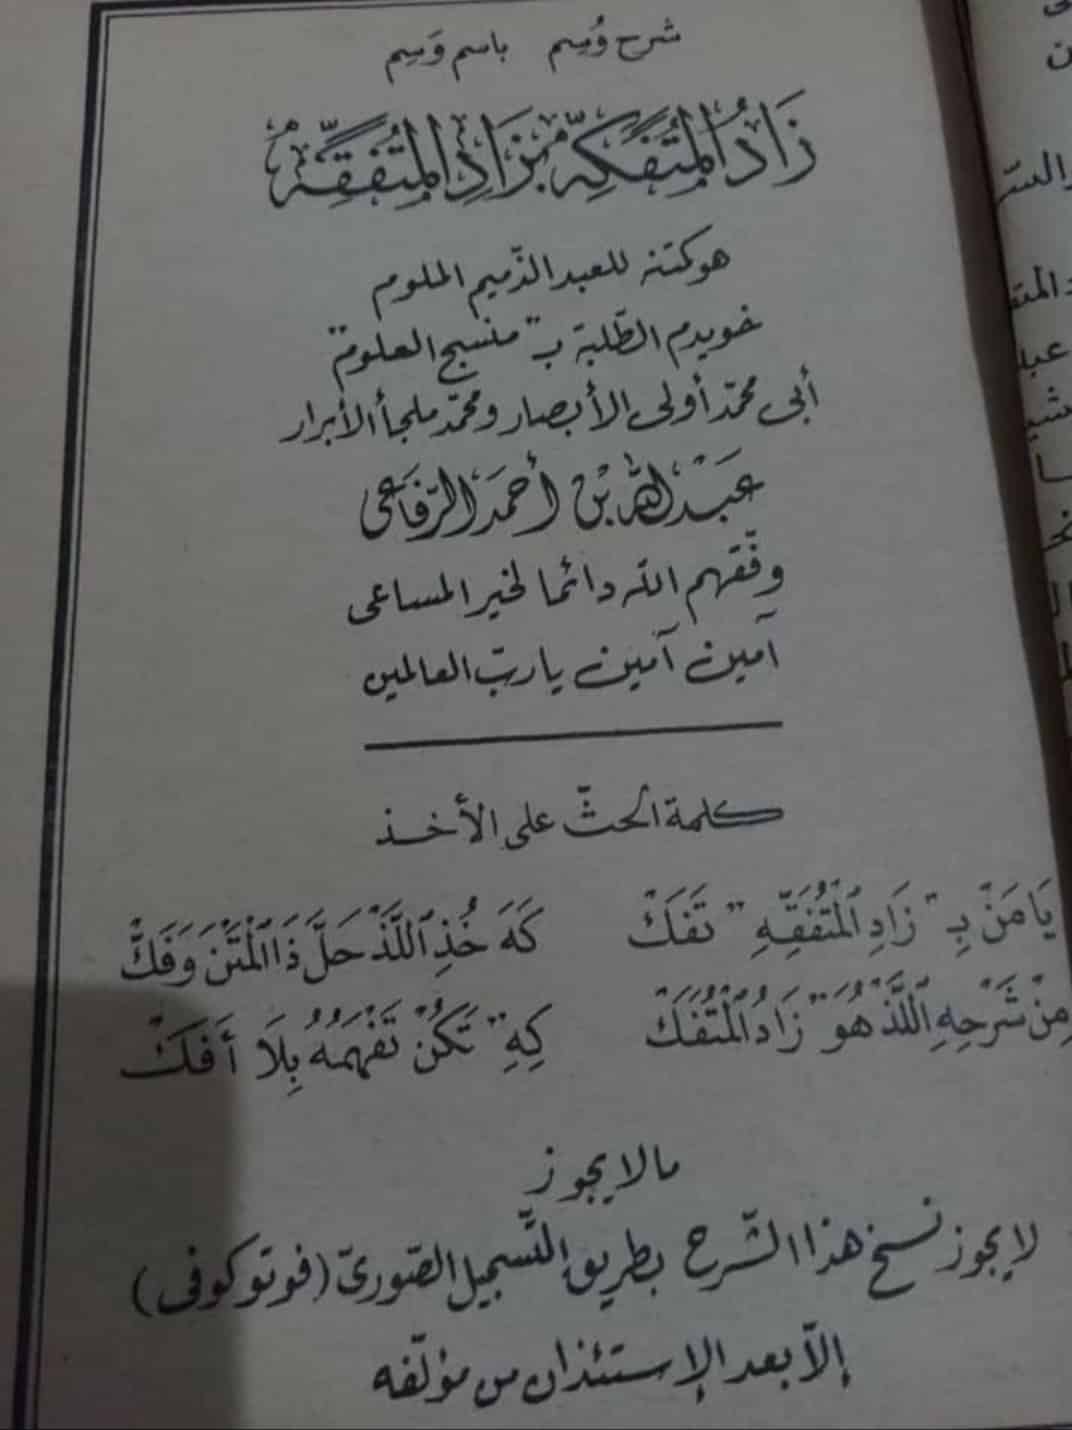 شرح وُسِم باسم وَسِم
زَادُ الْمُتَفَكِّهِ بِزَادِ الْمُتَفَقِّهِ
هو كتنه للعبد الذّميم الملوم
خويدم الطّلبة بـ "منسج العلوم"
أبى محمّد أولى الأبصار ومحمّد ملجأ الأبرار
عَبْدُ اللهِ بْنُ أَحْمَدَ الرِّفَاعِى
وفّقهم الله دائما لخير المساعى
آمين آمين يا ربّ العالمين
كلمة الحثّ على الأخذ
يَا مَنْ بِـ "زَادِ الْمُتَفَقِّهِ" تَفَكْ كَهَ خُذِ اللَّذْ حَلَّ ذَا الْمَتْنَ وَفَكّْ
مِنْ شَرْحِهِ اللَّذْ هُوَ "زَادُ الْمُتَفَكْ كِهِ" تَكُنْ تَفْهَمُهُ بِلَا أَفَكْ
مالا يجوز
لا يجوز نسخ هذا الشّرح بطريق التّسجيل الصّورىّ (فوتوكوفى)
إلاّ بعد الإستئذان من مؤلّفه